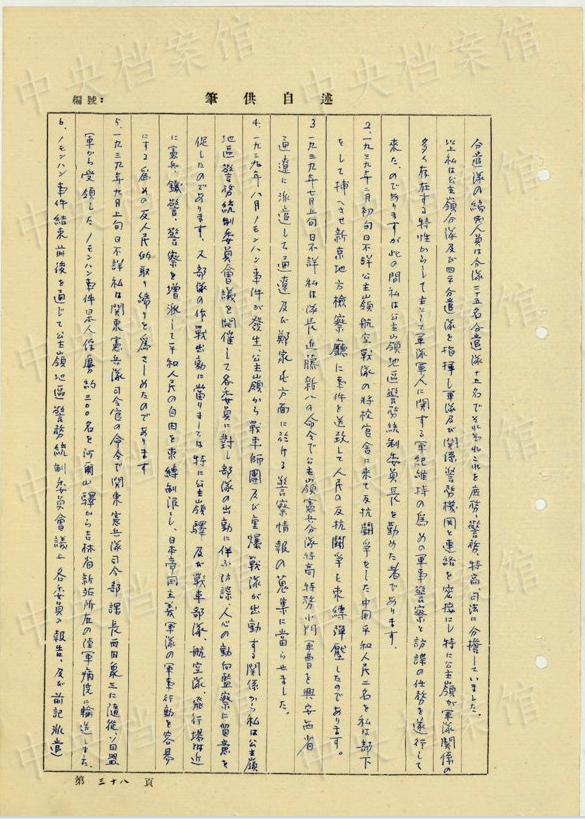 述自供筆
編號:
分遣隊の編成人員は分隊二十五名分遣隊十五名でそれぞれこれを庶務、警務、特高、司法に分擔していました。
以上私は公主嶺分隊及び四平分遣隊を指揮し軍隊及び関係警務機関と連絡を密接にし特に公主嶺が軍隊関係の
多く存在する特性からして主として軍隊軍人に関する軍紀維持の為めの軍事警察と防諜の任務を遂行して
来たのでありますが此の間私は公主嶺地區警務統制委員長を勤めた者であります。
2.一九三九年二月初旬日不詳公主嶺航空戦隊の将校官舎に来て反抗闘争をした中国平和人民二名を私は部下
をして捕へさせ新京地方検察廳に事件を送致して人民の反抗闘争を束縛彈壓したのであります。
3.一九三九年七月上旬日不詳私は隊長近藤新八の命令で公主嶺憲兵分隊特高特務小門軍曹を興安西省
通遼に派遣して通遼及び鄭家屯方面に於ける警察情報の蒐集に當らせました。
4.一九三九年八月ノモンハン事件が發生、公主嶺から戰車師團及び重爆戰隊が出動する関係から私は公主嶺
地區警務統制委員會議を開催して各委員に對し部隊の出動に伴ふ防諜、人心の動向監察に留意を
促したのであります。又部隊の作戰出動に當りましては特に公主嶺驛及び戰車部隊、航空隊飛行場附近
に憲兵、鐵警、警察を増派して平和人民の自由を束縛制限し、日本帝國主義軍隊の軍事行動を容易
にする為めの反人民的取り締りを為さしめたのであります
5.一九三九年九月上旬日不詳私は関東憲兵隊司令官の命令で関東憲兵隊司令部課長西田象三に随從、ソ日盟
軍から受領したノモンハン事件日本人俘虜約三00名を阿爾山驛から吉林省新站所在の陸軍病院に輸送しました。
6.ノモンハン事件結束前後を通じて公主嶺地區警務統制委員會議上各委員の報告、及び前記派遣
第 三十八 頁
中央档案馆